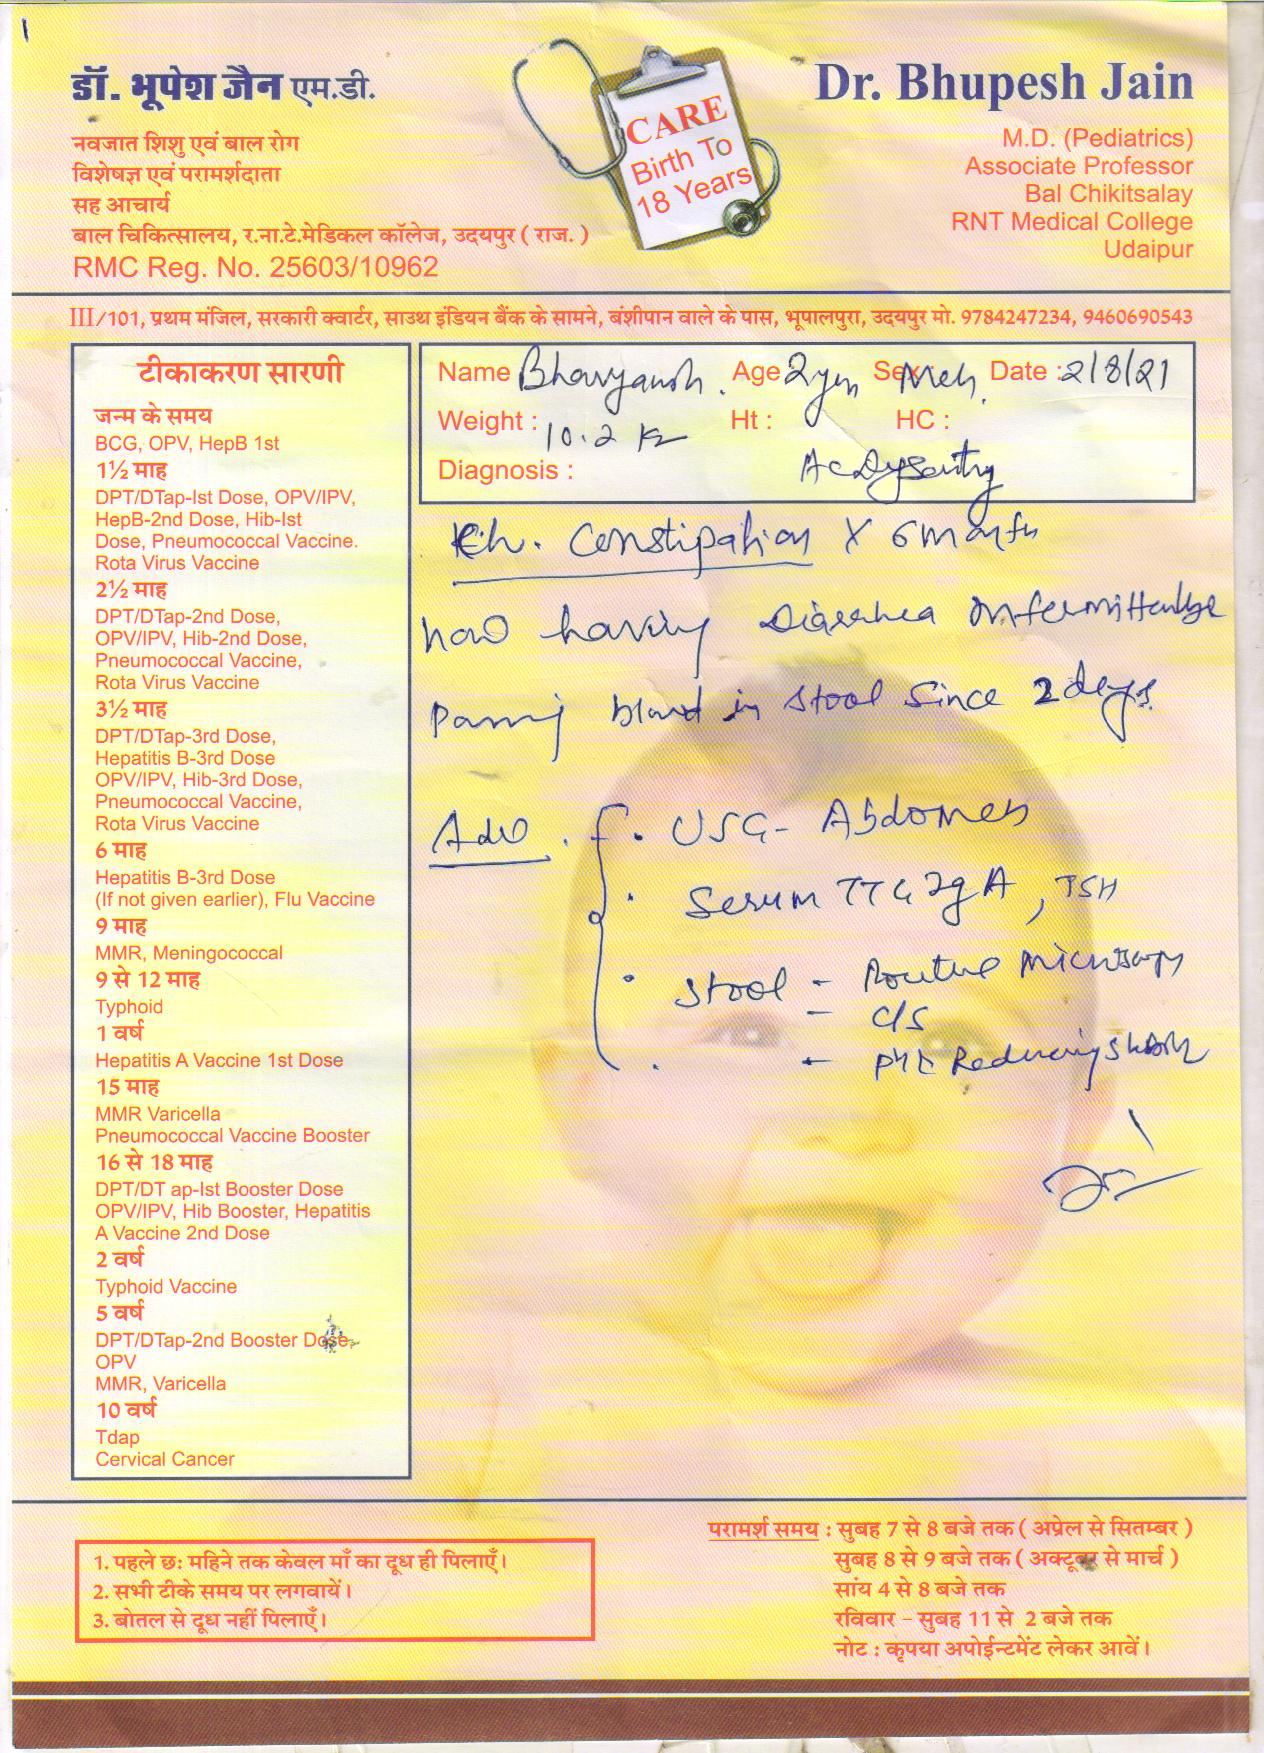 डॉ. भूपेश जैन एम.डी.
नवजात शिशु एवं बाल रोग
विशेषज्ञ एवं परामर्शदाता
सह आचार्य
बाल चिकित्सालय, र.ना.टे.मेडिकल कॉलेज, उदयपुर ( राज. )
RMC Reg. No. 25603/10962
CARE
Birth To
18 Years
Dr. Bhupesh Jain
M.D. (Pediatrics)
Associate Professor
Bal Chikitsalay
RNT Medical College
Udaipur
III/101, प्रथम मंजिल, सरकारी क्वार्टर, साउथ इंडियन बैंक के सामने, बंशीपान वाले के पास, भूपालपुरा, उदयपुर मो. 9784247234, 9460690543
टीकाकरण सारणी
जन्म के समय
BCG, OPV, HepB 1st
1½ माह
DPT/DTap-Ist Dose, OPV/IPV,
HepB-2nd Dose, Hib-Ist
Dose, Pneumococcal Vaccine.
Rota Virus Vaccine
2½ माह
DPT/DTap-2nd Dose,
OPV/IPV, Hib-2nd Dose,
Pneumococcal Vaccine,
Rota Virus Vaccine
3½ माह
DPT/DTap-3rd Dose,
Hepatitis B-3rd Dose
OPV/IPV, Hib-3rd Dose,
Pneumococcal Vaccine,
Rota Virus Vaccine
6 माह
Hepatitis B-3rd Dose
(If not given earlier), Flu Vaccine
9 माह
MMR, Meningococcal
9 से 12 माह
Typhoid
1 वर्ष
Hepatitis A Vaccine 1st Dose
15 माह
MMR Varicella
Pneumococcal Vaccine Booster
16 से 18 माह
DPT/DT ap-Ist Booster Dose
OPV/IPV, Hib Booster, Hepatitis
A Vaccine 2nd Dose
2 वर्ष
Typhoid Vaccine
5 वर्ष
DPT/DTap-2nd Booster Dose,
OPV
MMR, Varicella
10 वर्ष
Tdap
Cervical Cancer
Name Bhavyansh. Age 2 Sex Date : 2/8/21
Weight : 10.2 Ht : HC :
Diagnosis : Ac Dysentry
Ch. Constipation X 6 month
now having Diarrhea intermittently
passing blood in stool since 2 days.
Adv. USG- Abdomen
Serum TTG IgA, TSH
Stool - Routine Microscopy
- C/S
- Reducing
1. पहले छः महिने तक केवल माँ का दूध ही पिलाएँ।
2. सभी टीके समय पर लगवायें।
3. बोतल से दूध नहीं पिलाएँ।
परामर्श समय : सुबह 7 से 8 बजे तक ( अप्रेल से सितम्बर )
सुबह 8 से 9 बजे तक ( अक्टूबर से मार्च )
सांय 4 से 8 बजे तक
रविवार - सुबह 11 से 2 बजे तक
नोट : कृपया अपोईन्टमेंट लेकर आवें।